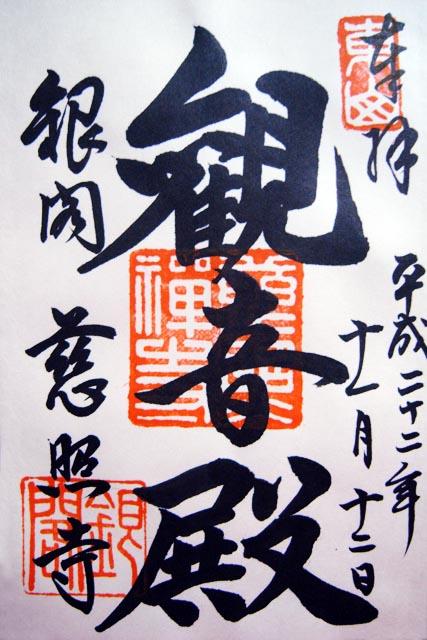 奉拝
平成二十二年
十一月十二日
観音殿
銀閣 慈照寺
東山
慈照禅寺
銀閣